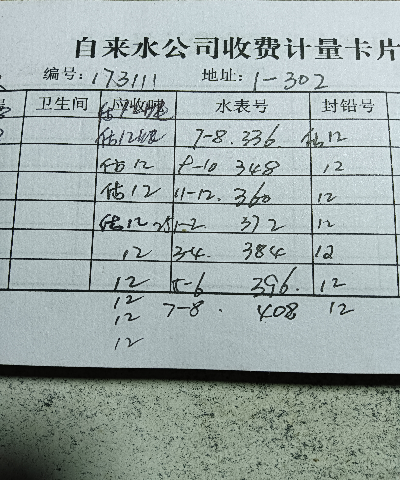 自来水公司收费计量卡片
编号: 173111 地址: 1-302
卫生间 水表号 封铅号
估12 7-8. 336. 估12
估12 9-10 348 12
估12 11-12. 360 12
估12 1-2 372 12
12 3-4. 384 12
12 5-6 396. 12
12 7-8. 408 12
12
12